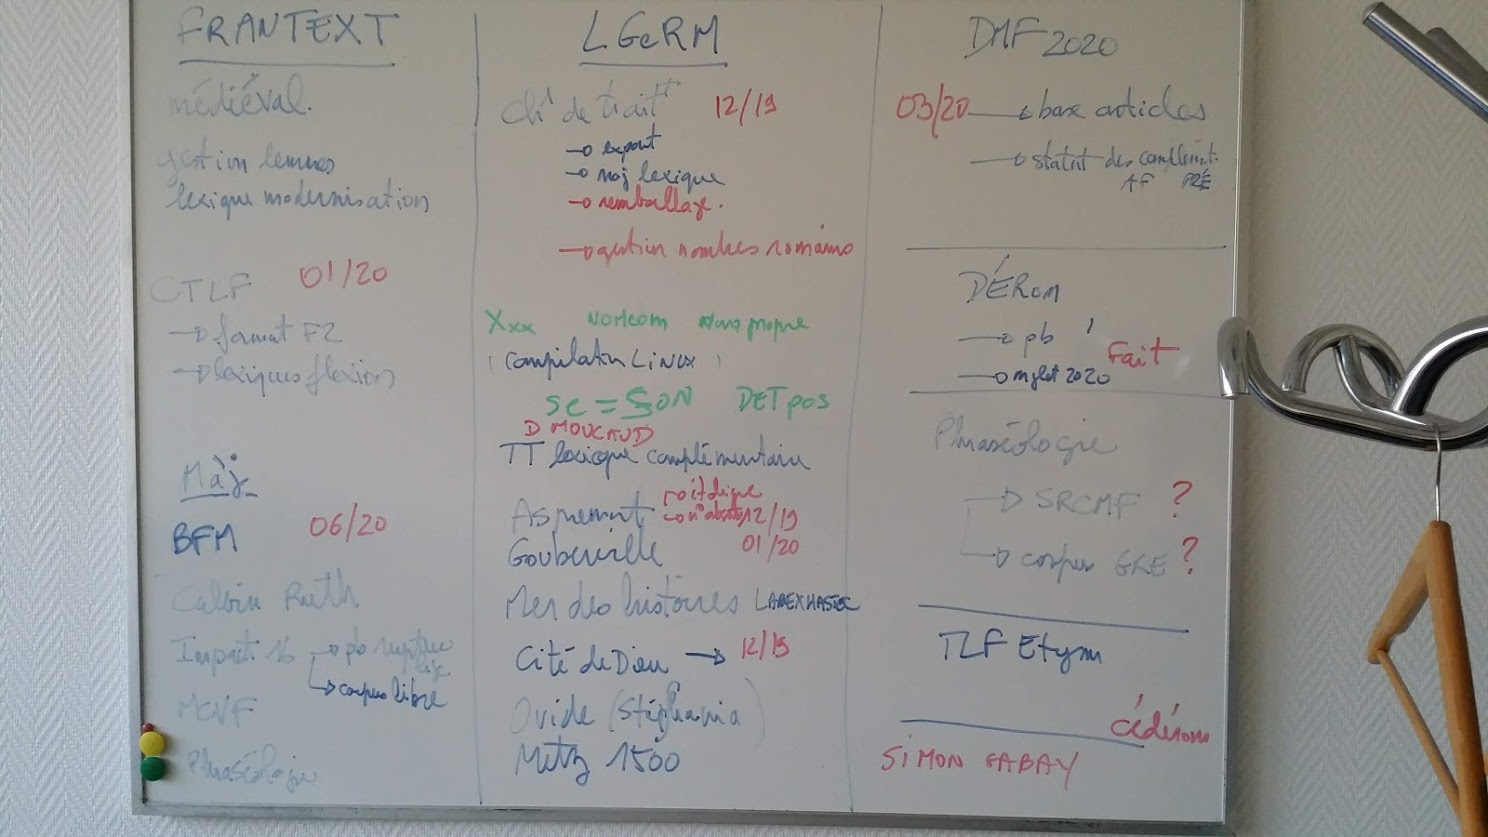 FRANTEXT
médiéval.
gestion lemmes
lexique modernisation
CTLF 01/20
→ format F2
→ lexiques flexion
Màj
BFM 06/20
Calvin Ruth
Impact 16 → pb rupture
→ corpus libre
MCVF
Phraséologie
LGeRM
de trait 12/19
→ export
→ màj lexique
→ remballage.
→ gestion nombres romains
Xxx nomcom nom propre
(Compilation Linux)
se = SON DETpos
D MOUCAUD
TT lexique complémentaire
Aspremont → italique
→ n° 12/19
Gouberville 01/20
Mer des histoires LABEXHASTEC
Cité de Dieu → 12/19
Ovide (Stéphania)
Metz 1500
DMF 2020
03/20 → base articles
→ statut des complémt.
AF PRÉ
DÉRom
→ pb
→ màj 2020 Fait
Phraséologie
→ SRCMF ?
→ corpus GRE ?
TLF Etym
cédérom
SIMON GABAY